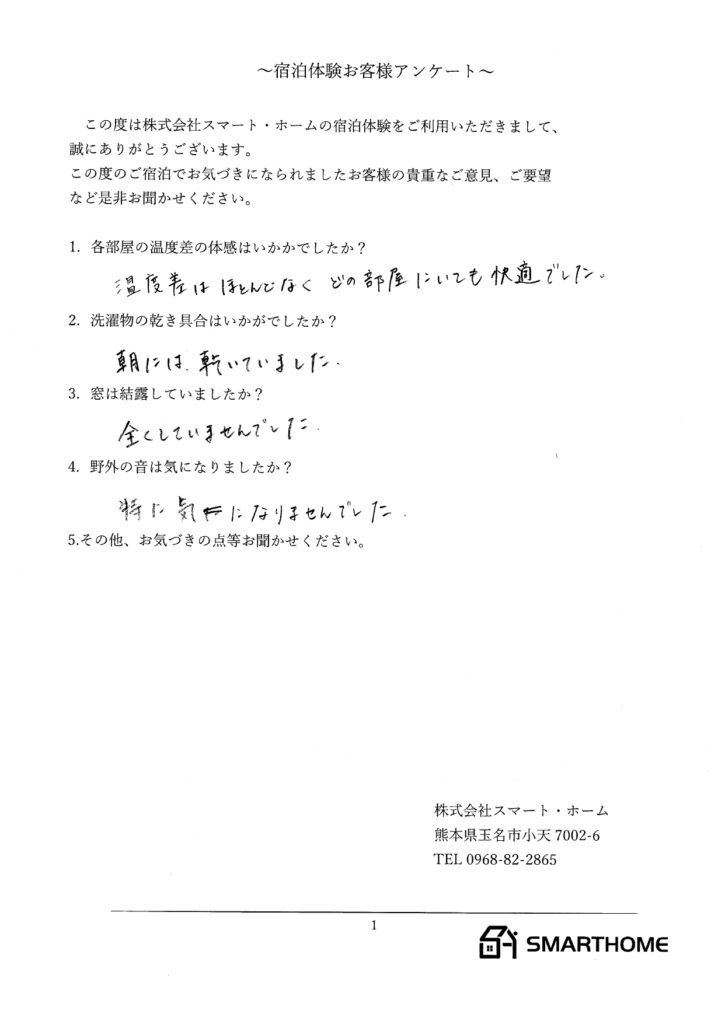 ～宿泊体験お客様アンケート～
この度は株式会社スマート・ホームの宿泊体験をご利用いただきまして、
誠にありがとうございます。
この度のご宿泊でお気づきになられましたお客様の貴重なご意見、ご要望
など是非お聞かせください。
1. 各部屋の温度差の体感はいかかでしたか？
温度差はほとんどなく どの部屋にいても快適でした。
2. 洗濯物の乾き具合はいかがでしたか？
朝には、乾いていました.
3. 窓は結露していましたか？
全くしていませんでした.
4. 野外の音は気になりましたか？
特に気になりませんでした.
5.その他、お気づきの点等お聞かせください。
株式会社スマート・ホーム
熊本県玉名市小天 7002-6
TEL 0968-82-2865
1
SMARTHOME